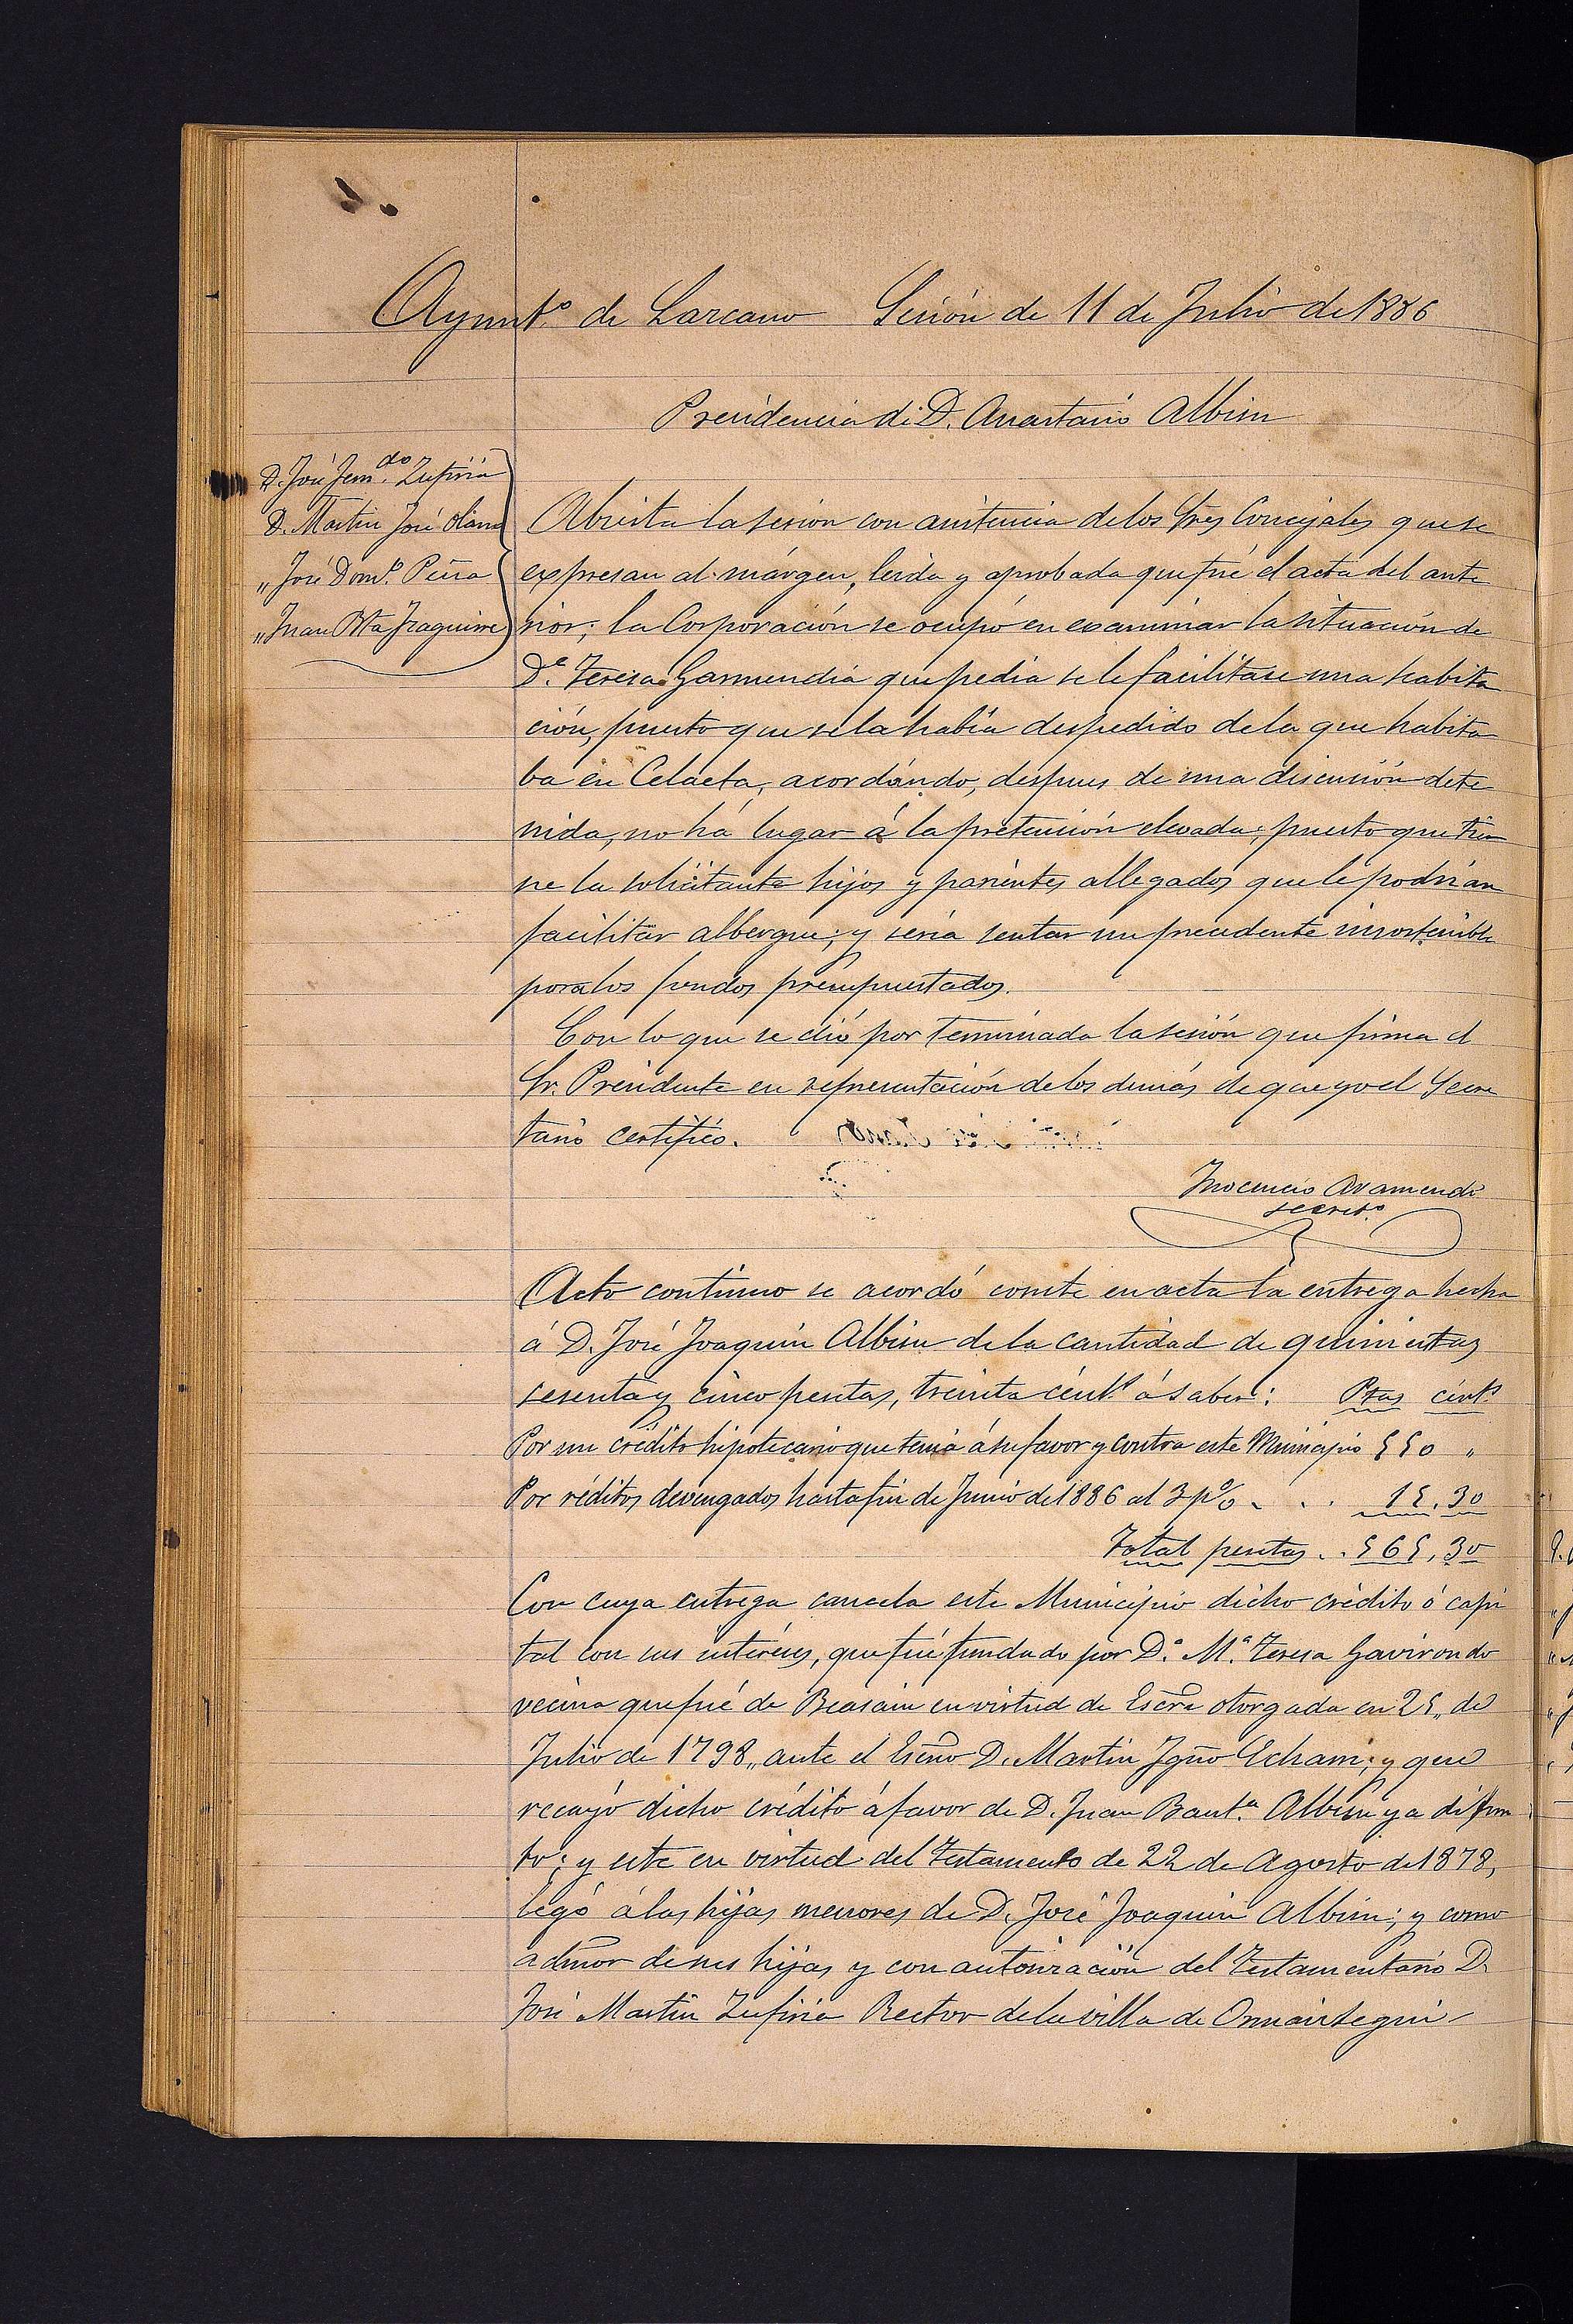 Ayunt.º de Lazcano Sesión de 11 de Julio de 1886
Presidencia de D. Anastasio Albisu
D. José Fern.do Zufiria
D. Martin José Olano
„ José Dom.º Peña
„ Juan Bta Izaguirre
Abierta la sesion con asistencia de los Sres Concejales que se
expresan al márgen, leida y aprobada que fué el acta del ante
rior; la Corporación se ocupó en examinar la situación de
D.ª Teresa Garmendia que pedia se le facilitase una habita
ción, puesto que se la había despedido de la que habita
ba en Celaeta, acordándo, despues de una discusión dete
nida, no há lugar á la pretensión elevada; puesto que tie
ne la solicitante hijos y parientes allegados que le podrían
facilitar albergue; y sería sentar un precedente insostenible
para los fondos presupuestados.
Con lo que se dió por terminada la sesión que firma el
Sr. Presidente en representación de los demás de que yo el Secre
tario certifico.
Inocencio Aramendi
secret.º
Acto continuo se acordó conste en acta la entrega hecha
á D. José Joaquin Albisu de la cantidad de quinientas
sesenta y cinco pesetas, treinta cént.s á saber: Ptas cént.s
Por un crédito hipotecario que tenia á su favor y contra este Municipio 550 „
Por réditos devengados hasta fin de Junio de 1886 al 3 p% . . . 15,30
Total pesetas . . 565,30
Con cuya entrega cancela este Municipio dicho crédito ó capi
tal con sus intereses, que fué fundado por D.ª M.ª Teresa Gavirondo
vecina que fué de Beasain en virtud de Escra otorgada en 25„ de
Julio de 1798„ ante el Escno D. Martin Igno Echani; y que
recayó dicho crédito á favor de D. Juan Baut.ª Albisu ya difun
to; y este en virtud del testamento de 22 de Agosto de 1878,
legó á las hijas menores de D. José Joaquin Albisu; y como
admor de sus hijas y con autorización del testamentario D.
José Martin Zufiria Rector de la villa de Ormaiztegui